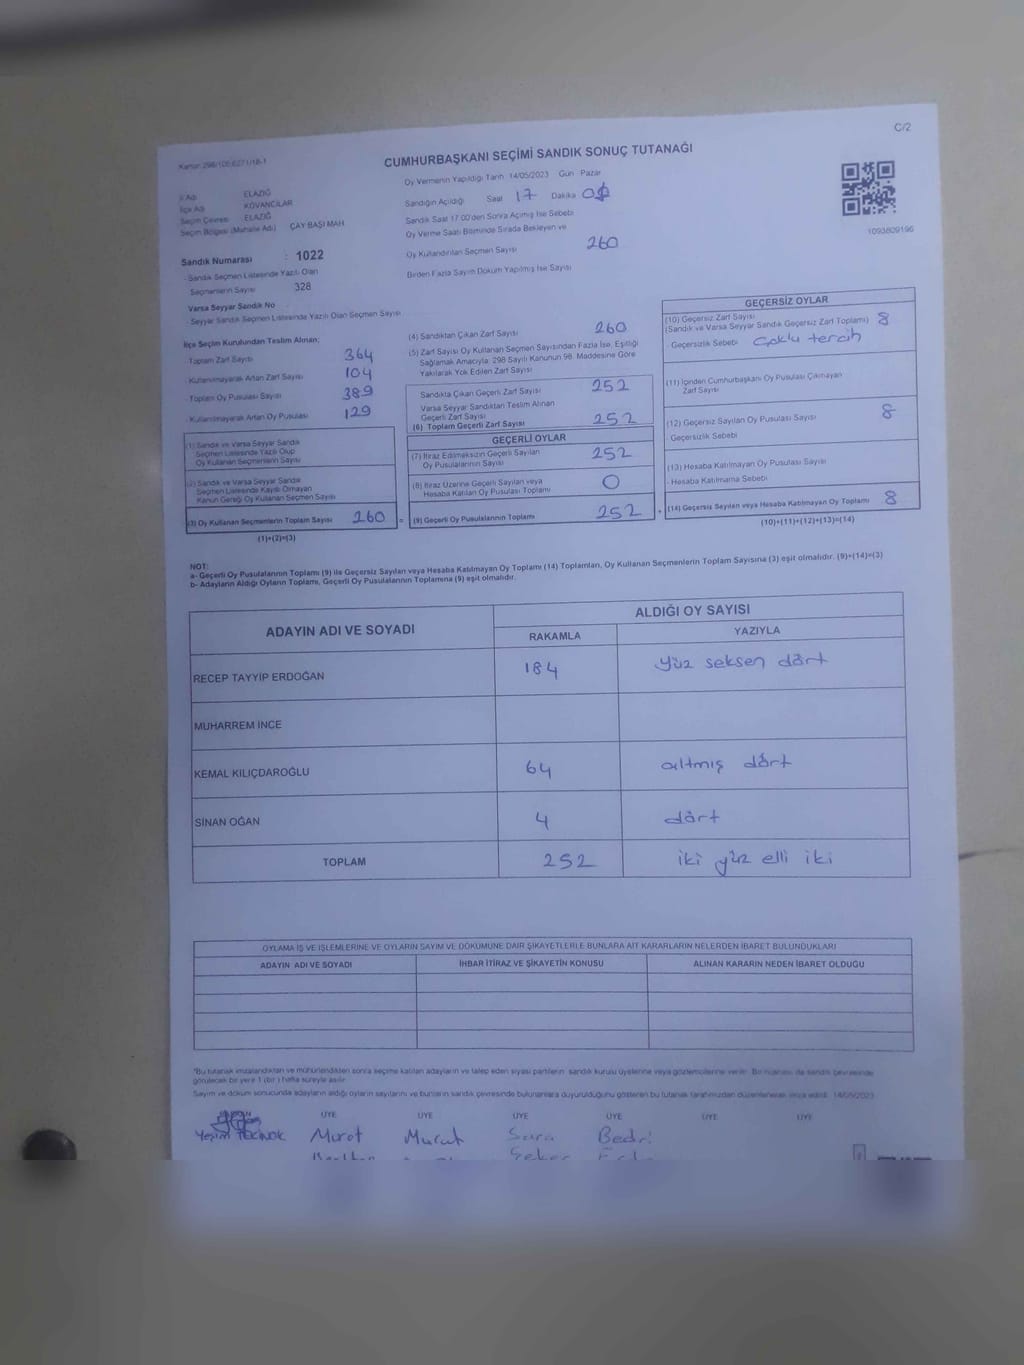 C/2
Kanun: 298/105;6271/18-1
CUMHURBAŞKANI SEÇİMİ SANDIK SONUÇ TUTANAĞI
İl Adı ELAZIĞ
İlçe Adı KOVANCILAR
Seçim Çevresi ELAZIĞ
Seçim Bölgesi (Mahalle Adı) ÇAYBAŞI MAH
Sandık Numarası : 1022
- Sandık Seçmen Listesinde Yazılı Olan
Seçmenlerin Sayısı 328
Varsa Seyyar Sandık No
- Seyyar Sandık Seçmen Listesinde Yazılı Olan Seçmen Sayısı
Oy Vermenin Yapıldığı Tarih 14/05/2023 Gün Pazar
Sandığın Açıldığı Saat 17 Dakika
Sandık Saat 17:00'den Sonra Açımış İse Sebebi
Oy Verme Saati Bitiminde Sırada Bekleyen ve
Oy Kullandırılan Seçmen Sayısı 260
Birden Fazla Sayım Döküm Yapılmış İse Sayısı
1093809196
İlçe Seçim Kurulundan Teslim Alınan;
Toplam Zarf Sayısı 364
- Kullanılmayarak Artan Zarf Sayısı 104
- Toplam Oy Pusulası Sayısı 389
- Kullanılmayarak Artan Oy Pusulası 129
(1) Sandık ve Varsa Seyyar Sandık
Seçmen Listesinde Yazılı Olup
Oy Kullanan Seçmenlerin Sayısı
(2) Sandık ve Varsa Seyyar Sandık
Seçmen Listesinde Kaydı Olmayan
Kanun Gereği Oy Kullanan Seçmen Sayısı
(3) Oy Kullanan Seçmenlerin Toplam Sayısı 260
(1)+(2)=(3)
(4) Sandıktan Çıkan Zarf Sayısı 260
(5) Zarf Sayısı Oy Kullanan Seçmen Sayısından Fazla İse, Eşitliği
Sağlamak Amacıyla; 298 Sayılı Kanunun 98. Maddesine Göre
Yakılarak Yok Edilen Zarf Sayısı
Sandıkta Çıkan Geçerli Zarf Sayısı 252
Varsa Seyyar Sandıktan Teslim Alınan
Geçerli Zarf Sayısı
(6) Toplam Geçerli Zarf Sayısı 252
GEÇERLİ OYLAR
(7) İtiraz Edilmeksizin Geçerli Sayılan
Oy Pusulalarının Sayısı 252
(8) İtiraz Üzerine Geçerli Sayılan veya
Hesaba Katılan Oy Pusulası Toplamı 0
= (9) Geçerli Oy Pusulalarının Toplamı 252
GEÇERSİZ OYLAR
(10) Geçersiz Zarf Sayısı
(Sandık ve Varsa Seyyar Sandık Geçersiz Zarf Toplamı) 8
Geçersizlik Sebebi Çoklu tercih
(11) İçinden Cumhurbaşkanı Oy Pusulası Çıkmayan
Zarf Sayısı
(12) Geçersiz Sayılan Oy Pusulası Sayısı 8
Geçersizlik Sebebi
(13) Hesaba Katılmayan Oy Pusulası Sayısı
- Hesaba Katılmama Sebebi
+ (14) Geçersiz Sayılan veya Hesaba Katılmayan Oy Toplamı 8
(10)+(11)+(12)+(13)=(14)
NOT:
a- Geçerli Oy Pusulalarının Toplamı (9) ile Geçersiz Sayılan veya Hesaba Katılmayan Oy Toplamı (14) Toplamları, Oy Kullanan Seçmenlerin Toplam Sayısına (3) eşit olmalıdır. (9)+(14)=(3)
b- Adayların Aldığı Oyların Toplamı, Geçerli Oy Pusulalarının Toplamına (9) eşit olmalıdır.
ADAYIN ADI VE SOYADI
ALDIĞI OY SAYISI
RAKAMLA YAZIYLA
RECEP TAYYİP ERDOĞAN 184 yüz seksen dört
MUHARREM İNCE
KEMAL KILIÇDAROĞLU 64 altmış dört
SİNAN OĞAN 4 dört
TOPLAM 252 iki yüz elli iki
OYLAMA İŞ VE İŞLEMLERİNE VE OYLARIN SAYIM VE DÖKÜMÜNE DAİR ŞİKAYETLERLE BUNLARA AİT KARARLARIN NELERDEN İBARET BULUNDUKLARI
ADAYIN ADI VE SOYADI İHBAR İTİRAZ VE ŞİKAYETİN KONUSU ALINAN KARARIN NEDEN İBARET OLDUĞU
*Bu tutanak imzalandıktan ve mühürlendikten sonra seçime katılan adayların ve talep eden siyasi partilerin sandık kurulu üyelerine veya gözlemcilerine verilir. Bir nüshası da sandık çevresinde
görülecek bir yere 1 (bir) hafta süreyle asılır.
Sayım ve döküm sonucunda adayların aldığı oyların sayılarını ve bunların sandık çevresinde bulunanlara duyurulduğunu gösteren bu tutanak tarafımızdan düzenlenerek imza edildi. 14/05/2023
ÜYE ÜYE ÜYE ÜYE ÜYE ÜYE
Yeşim TEKINOK Murat Murat Sara Bedri
Şeker